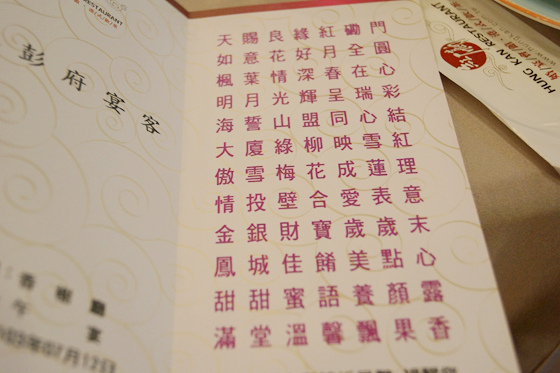 RESTAURANT
彭府宴客
天賜良緣紅磡門
如意花好月全圓
楓葉情深春在心
明月光輝呈瑞彩
海誓山盟同心結
大廈綠柳映雪紅
傲雪梅花成蓮理
情投壁合愛表意
金銀財寶歲歲末
鳳城佳餚美點心
甜甜蜜語養顏露
滿堂溫馨飄果香
HUNG KAN RESTAURANT